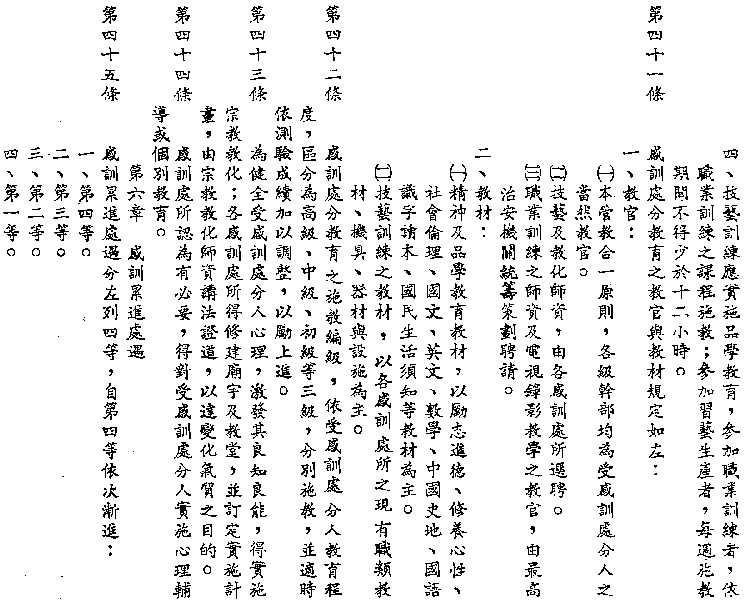 四、技藝訓練應實施品學教育，參加職業訓練者，依
職業訓練之課程施教；參加習藝生產者，每週施教
期間不得少於十二小時。
第四十一條　感訓處分教育之教官與教材規定如左：
一、教官：
㈠本管教合一原則，各級幹部均為受感訓處分人之
當然教官。
㈡技藝及教化師資，由各感訓處所遴聘。
㈢職業訓練之師資及電視錄影教學之教官，由最高
治安機關統籌策劃聘請。
二、教材：
㈠精神及品學教育教材，以勵志進德、修養心性、
社會倫理、國文、英文、數學、中國史地、國語
識字讀本、國民生活須知等教材為主。
㈡技藝訓練之教材，以各感訓處所之現有職類教
材、機具、器材與設施為主。
第四十二條　感訓處分教育之施教編級，依受感訓處分人教育程
度，區分為高級、中級、初級等三級，分別施教，並適時
依測驗成績加以調整，以勵上進。
第四十三條　為健全受感訓處分人心理，激發其良知良能，得實施
宗教教化；各感訓處所得修建廟宇及教堂，並訂定實施計
畫，由宗教教化師資講法證道，以達變化氣質之目的。
第四十四條　感訓處所認為有必要，得對受感訓處分人實施心理輔
導或個別教育。
第六章　感訓累進處遇
第四十五條　感訓累進處遇分左列四等，自第四等依次漸進：
一、第四等。
二、第三等。
三、第二等。
四、第一等。